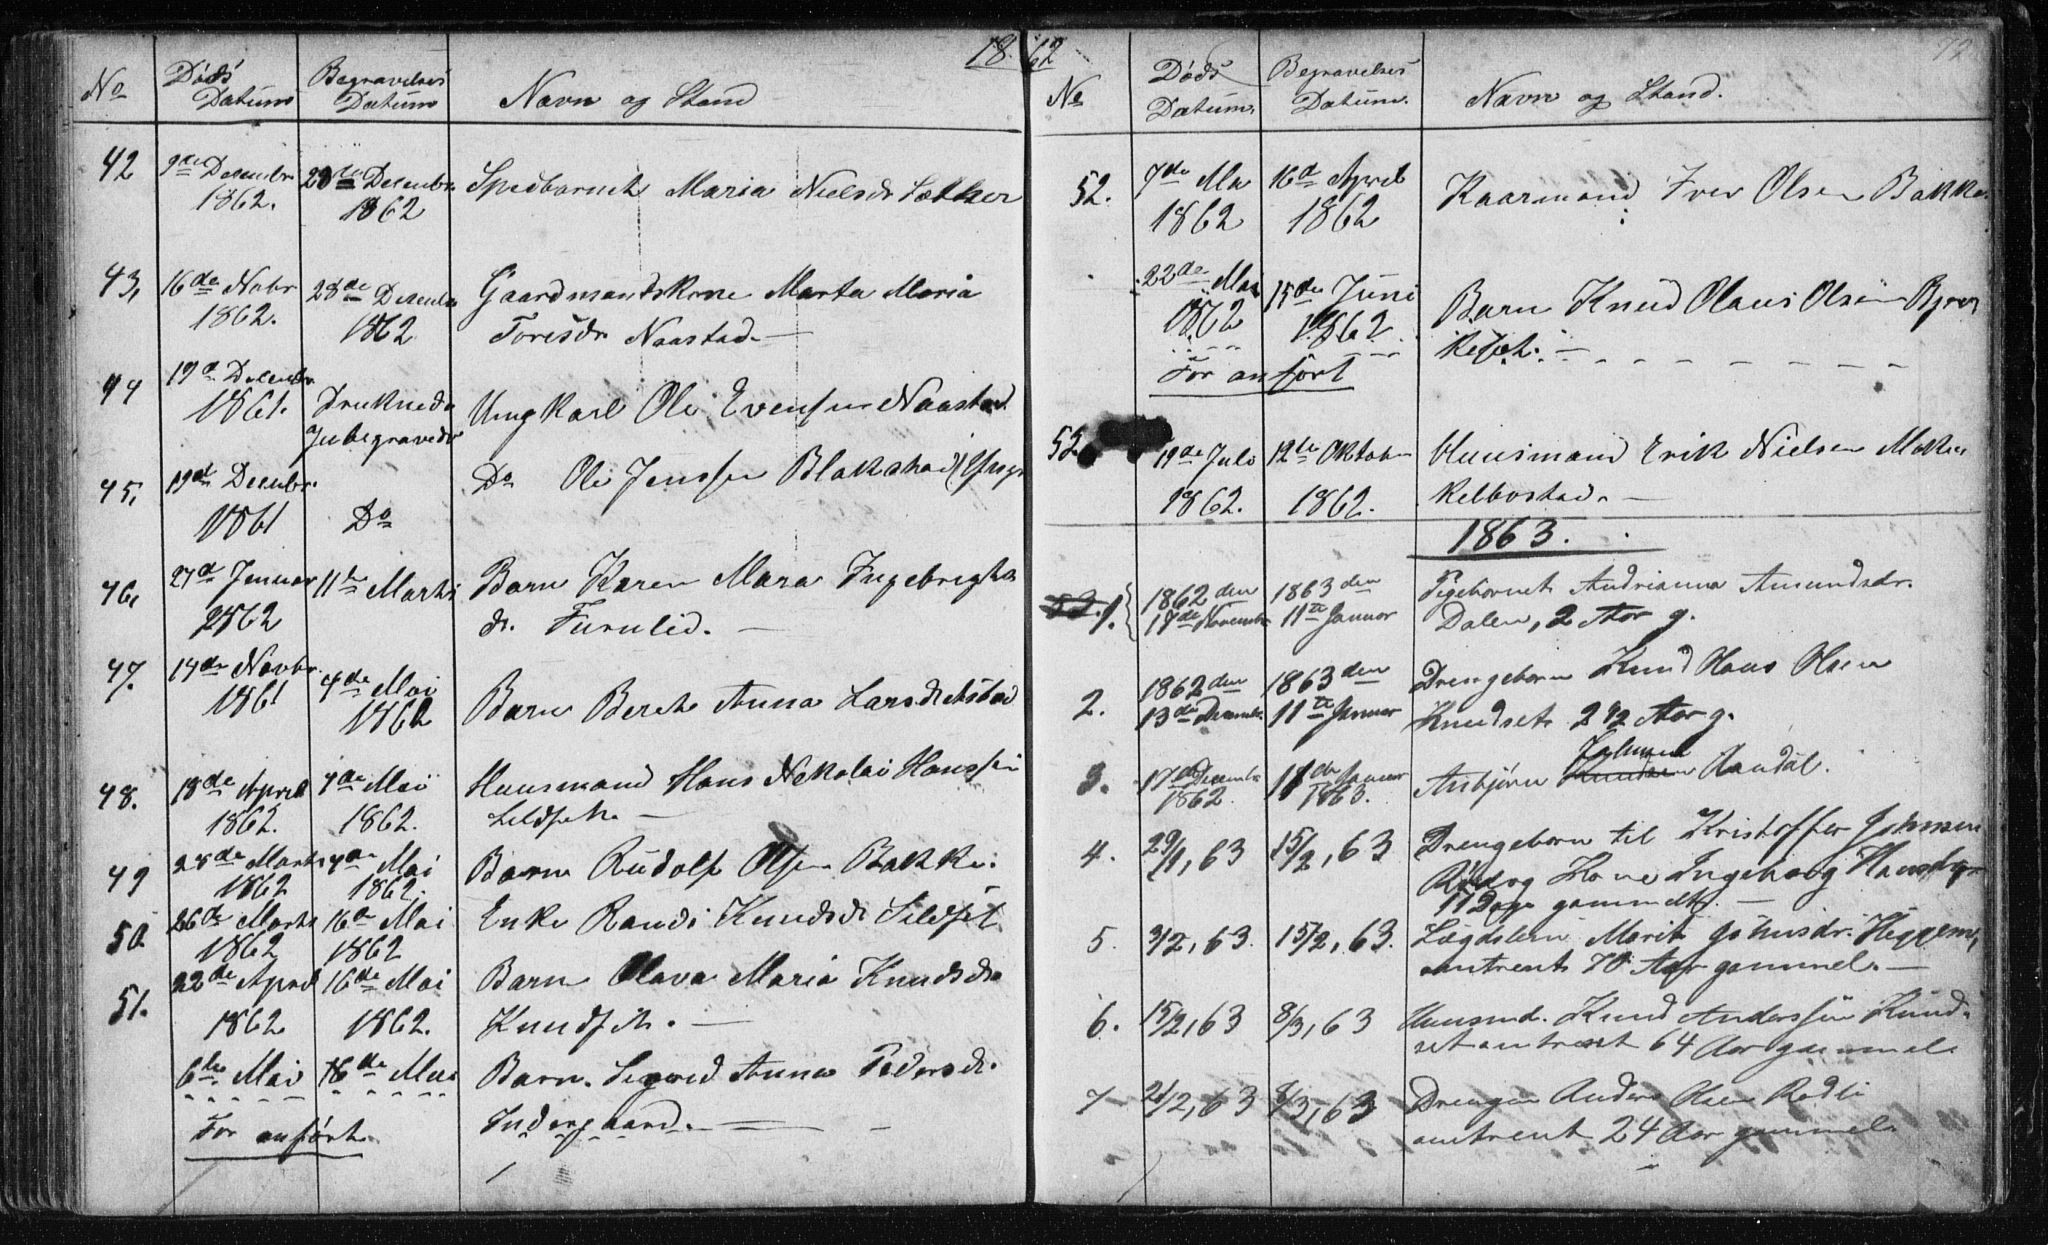 1862
No
Døds Datum
Begravelses Datum
Navn og Stand
42 9de Decembr 1862. 28de Decembr 1862 Spedbarnet Maria Nielsdr Sætter
43, 16de Novbr 1862. 28de Decembr 1862 Gaardmandskone Marta Maria
Toresdr Naastad.
44 19de Decembr 1861. Druknede Ubegravede Ungkarl Ole Evensen Naastad
45, 19de Decembr. 1861 Do Do Ole Jenssen Blakstad
46, 27de Januar 1862 11te Marts Barn Karen Mara Ingebrigts
dr. Furulid.
47. 14de Novbr. 1861 4de Mai 1862 Barn Beret Anna Larsdr
48. 18de April 1862. 4de Mai 1862. Huusmand Hans Nekolai Hanssen
Sildset.
49 28de Marts 1862 4de Mai 1862. Barn Rudolf Olsen Bakke.
50 26de Marts 1862 16de Mai 1862 Enke Randi Knudsdr Sildset
51. 22de April 1862 16de Mai 1862. Barn Olava Maria Knudsdr
Knudset.
6te Mai 16de Mai Barn. Sigrid Anna Pedersdr.
For anført. Indergaard.
72
No
Døds Datum.
Begravelses Datum.
Navn og Stand.
52. 7de Mai 1862 16de April 1862 Kaarmand Iver Olsen Bakke.
22de Mai 1862 15de Juni 1862 Barn Knud Olaus Olsen
For anført
53. 19de Juli 1862. 12te Oktober 1862. Huusmand Erik Nielsen
1863.
53. 1. 1862 den 17de November 1863 den 11te Januar Pigebarnet Andrianna Amundsdr.
Dalen, 2 Aar g.
2. 1862 den 13de Decembr 1863 den 11te Januar Drengebarn Knud Hans Olsen
Knudset 2 1/2 Aar g.
3. 17de Decembr 1862. 11de Januar 1863. Anbjørn Knudsen
4. 29/1, 63 15/2, 63 Drengebarn til Kristoffer Johnsen
og Kone Ingeborg Hansdtr
11 Dage gammelt.
5. 3/2, 63. 15/2, 63. Lægdslem Marit Johnsdr. Heggem,
omtrent 70 Aar gammel.
6. 15/2, 63 8/3, 63 Huusmd. Knud Anderssen Knud-
set omtrent 64 Aar gammel
7 21/2, 63 8/3, 63 Drengen Anders Olsen Rødli
omtrent 24 Aar gammel.